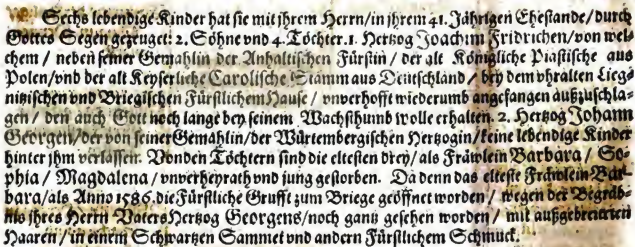 Sechs lebendige Kinder hat sie mit jhrem Herrn/in jhrem 41. Jährigen Ehestande/durch
Gottes Segen gezeuget: 2. Söhne vnd 4. Töchter. 1. Hertzog Joachim Fridrichen/von wel-
chem / neben seiner Gemahlin der Anhaltischen Fürstin / der alt Königliche Piastische aus
Polen/vnd der alt Keyserliche Carolische Stamm aus Deutschland / bey dem vhralten Lieg-
nitzischen vnd Briegischen Fürstlichem Hause / vnverhofft wiederumb angefangen außzuschla-
gen / den auch Gott noch lange bey seinem Wachsthumb wolle erhalten. 2. Hertzog Johann
Georgen/der von seiner Gemahlin/der Würtembergischen Hertzogin/keine lebendige Kinder
hinter jhm verlassen. Von den Töchtern sind die eltesten drey/als Fräwlein Barbara / So-
phia / Magdalena / vnverheyrath vnd jung gestorben. Da denn das elteste Fräwlein Bar-
bara/als Anno 1586. die Fürstliche Grufft zum Briege geöffnet worden / wegen der Begräb-
nis jhres Herrn Vaters Hertzog Georgens/noch gantz gesehen worden / mit außgebreiteten
Haaren / in einem Schwartzen Sammet vnd andern Fürstlichem Schmuck.